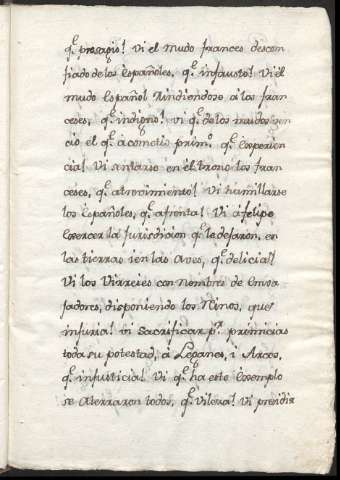 q.^e presagio! vi el mudo frances descon
fiado de los Españoles, q.^e infausto! Vi el
mudo Español Rindiendose a los fran
ceses, q.^e indigno! vi q.^e de los mudos ven
cio el q.^e acometio prim.^o q.^e Experien
cia! Vi sentarse en el trono los fran
ceses, q.^e atrevimiento! Vi humillarse
los Españoles, q.^e afrenta! Vi a felipe
Exercer la Jurisdicion q.^e le dejaron, en
las tierras i en las Aves, q.^e delicia!
Vi los Virreies con nombres de Emba
jadores, disponiendo los Reinos, que
injuria! vi Sacrificar p.^r primicias
toda su potestad, a Leganes, i Arcos,
q.^e injusticia! Vi q.^e ha este Exemplo
se Aterraron todos, q.^e vileza! Vi presidir